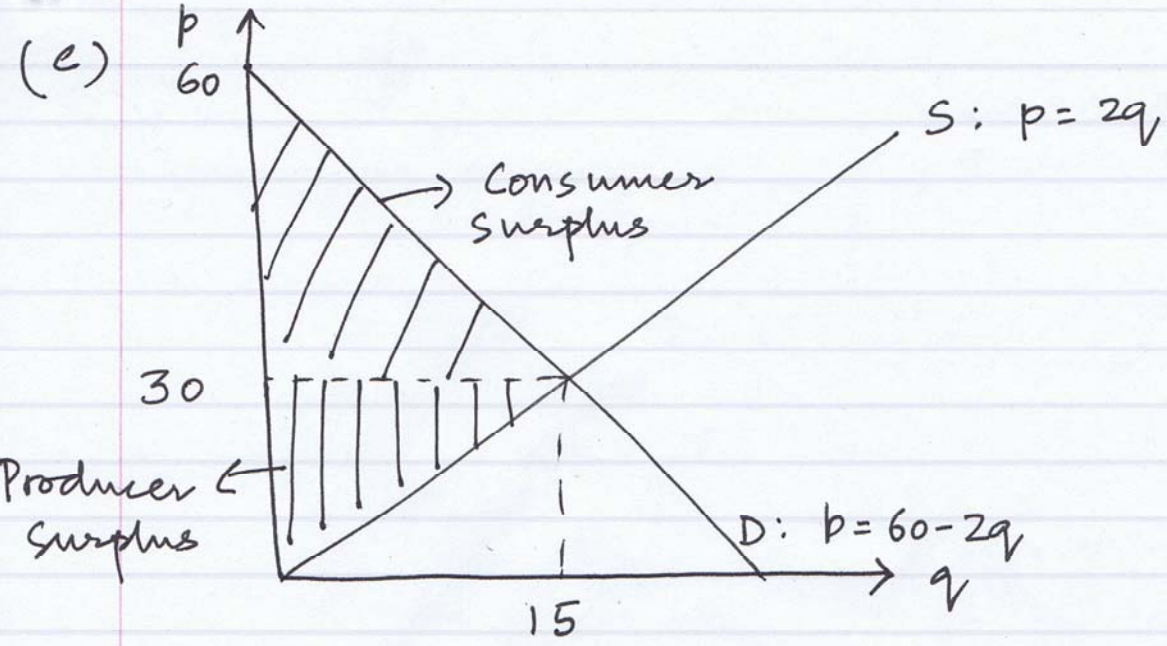 (e)
p
60
S: p = 2q
Consumer
surplus
30
Producer
surplus
D: p = 60-2q
q
15